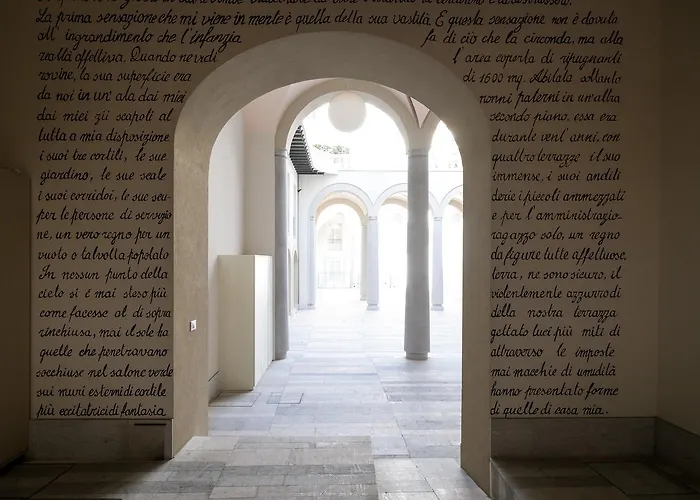 La prima sensazione che mi viene in mente è quella della sua vastità. E questa sensazione non è dovuta
all' ingrandimento che l'infanzia fa di ciò che la circonda, ma alla
realtà affettiva. Quando ne vidi l'area coperta di ripugnanti
rovine, la sua superficie era di 1600 mq. Abitata soltanto
da noi in un'ala dai miei nonni paterni in un'altra
dai miei zii scapoli al secondo piano, essa era
tutta a mia disposizione durante vent' anni, con
i suoi tre cortili, le sue quattro terrazze il suo
giardino, le sue scale immense, i suoi anditi
i suoi corridoi, le sue scu- derie i piccoli ammezzati
per le persone di servizio e per l'amministrazio-
ne, un vero regno per un ragazzo solo, un regno
vuoto o talvolta popolato da figure tutte affettuose.
In nessun punto della terra, ne sono sicuro, il
cielo si è mai steso più violentemente azzurro di
come facesse al di sopra della nostra terrazza
rinchiusa, mai il sole ha gettato luci più miti di
quelle che penetravano attraverso le imposte
socchiuse nel salone verde mai macchie di umidità
sui muri esterni di cortile hanno presentato forme
più eccitatrici di fantasia di quelle di casa mia.